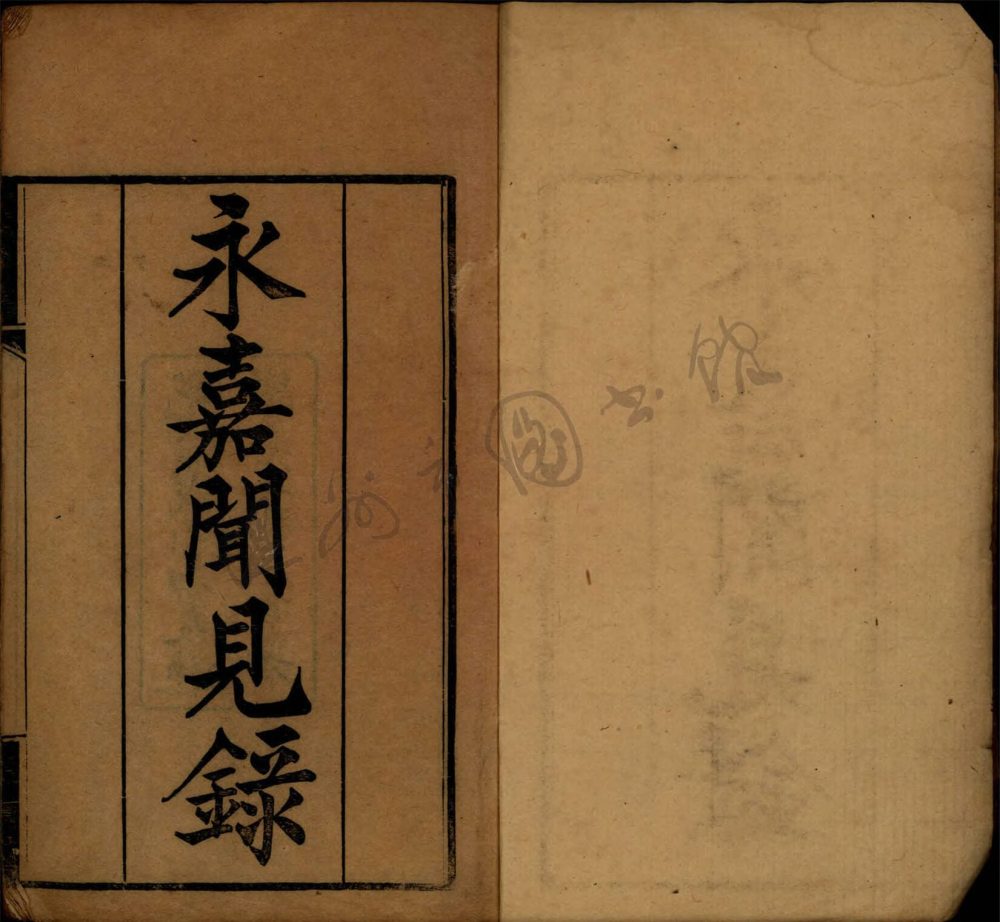 永嘉聞見錄